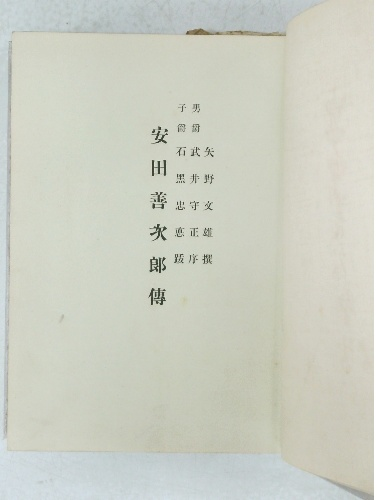 矢野文雄撰
男爵武井守正序
子爵石黑忠悳跋
安田善次郎傳